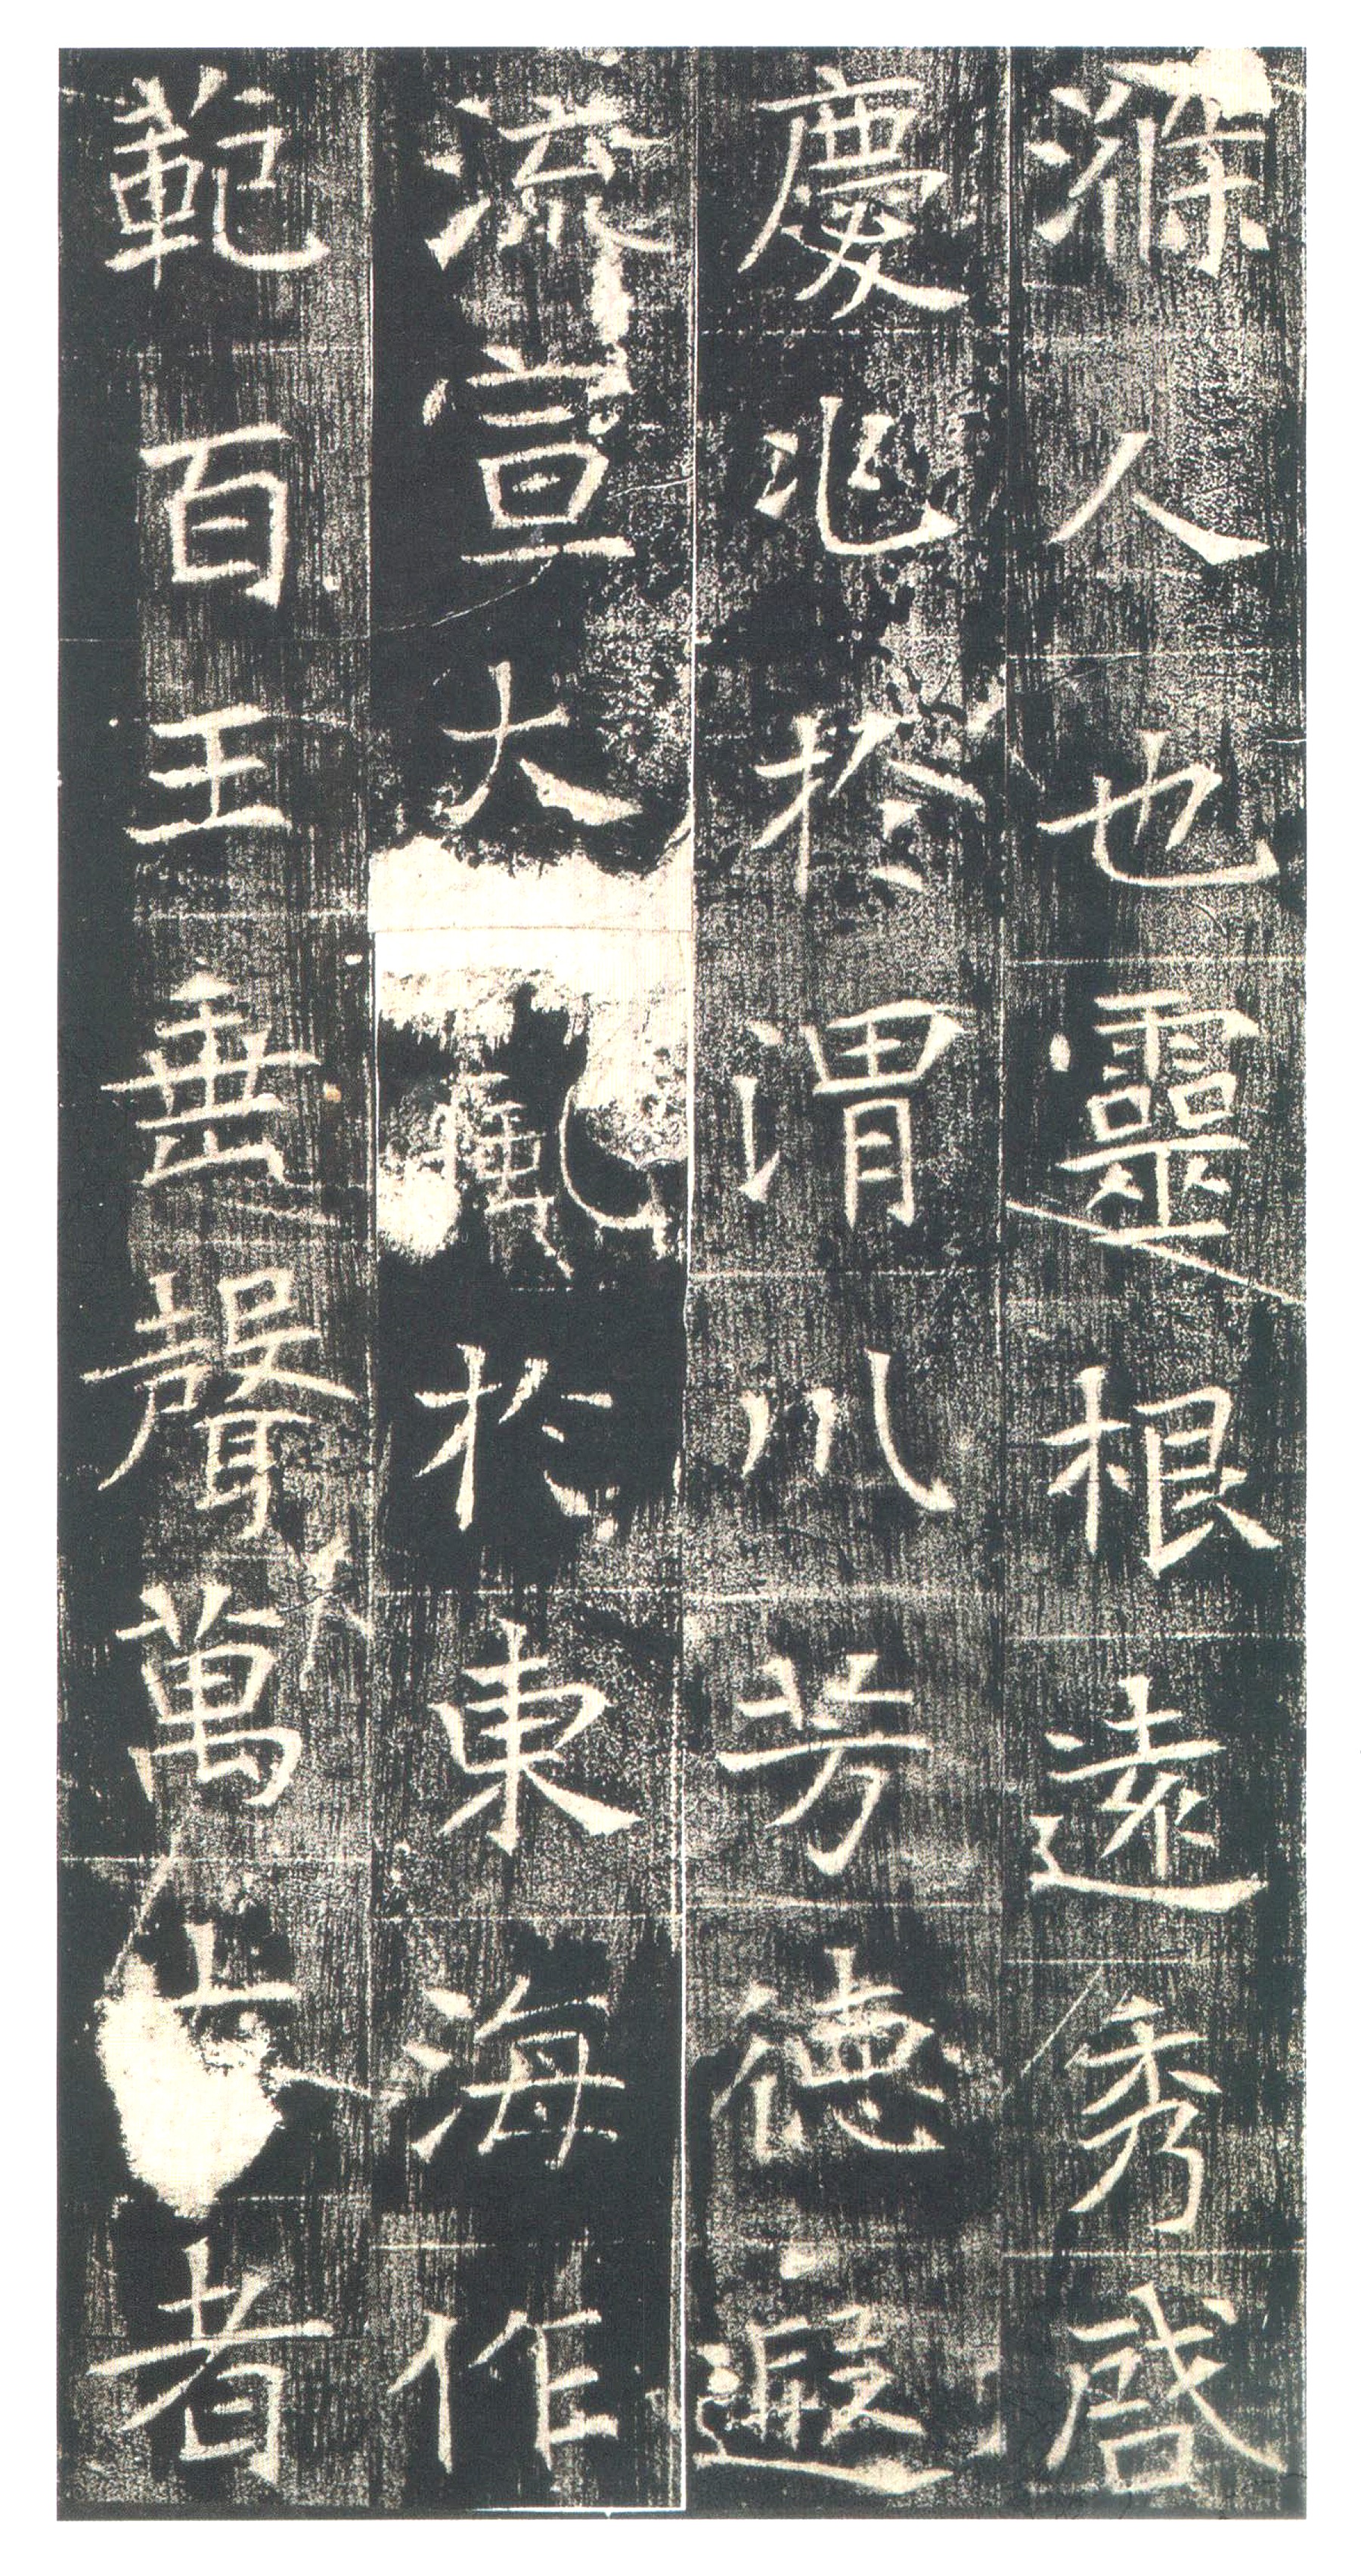 滌人也靈根遠秀啓
慶兆於渭川芳德遐
流宣大風於東海作
範百王垂聲萬古者